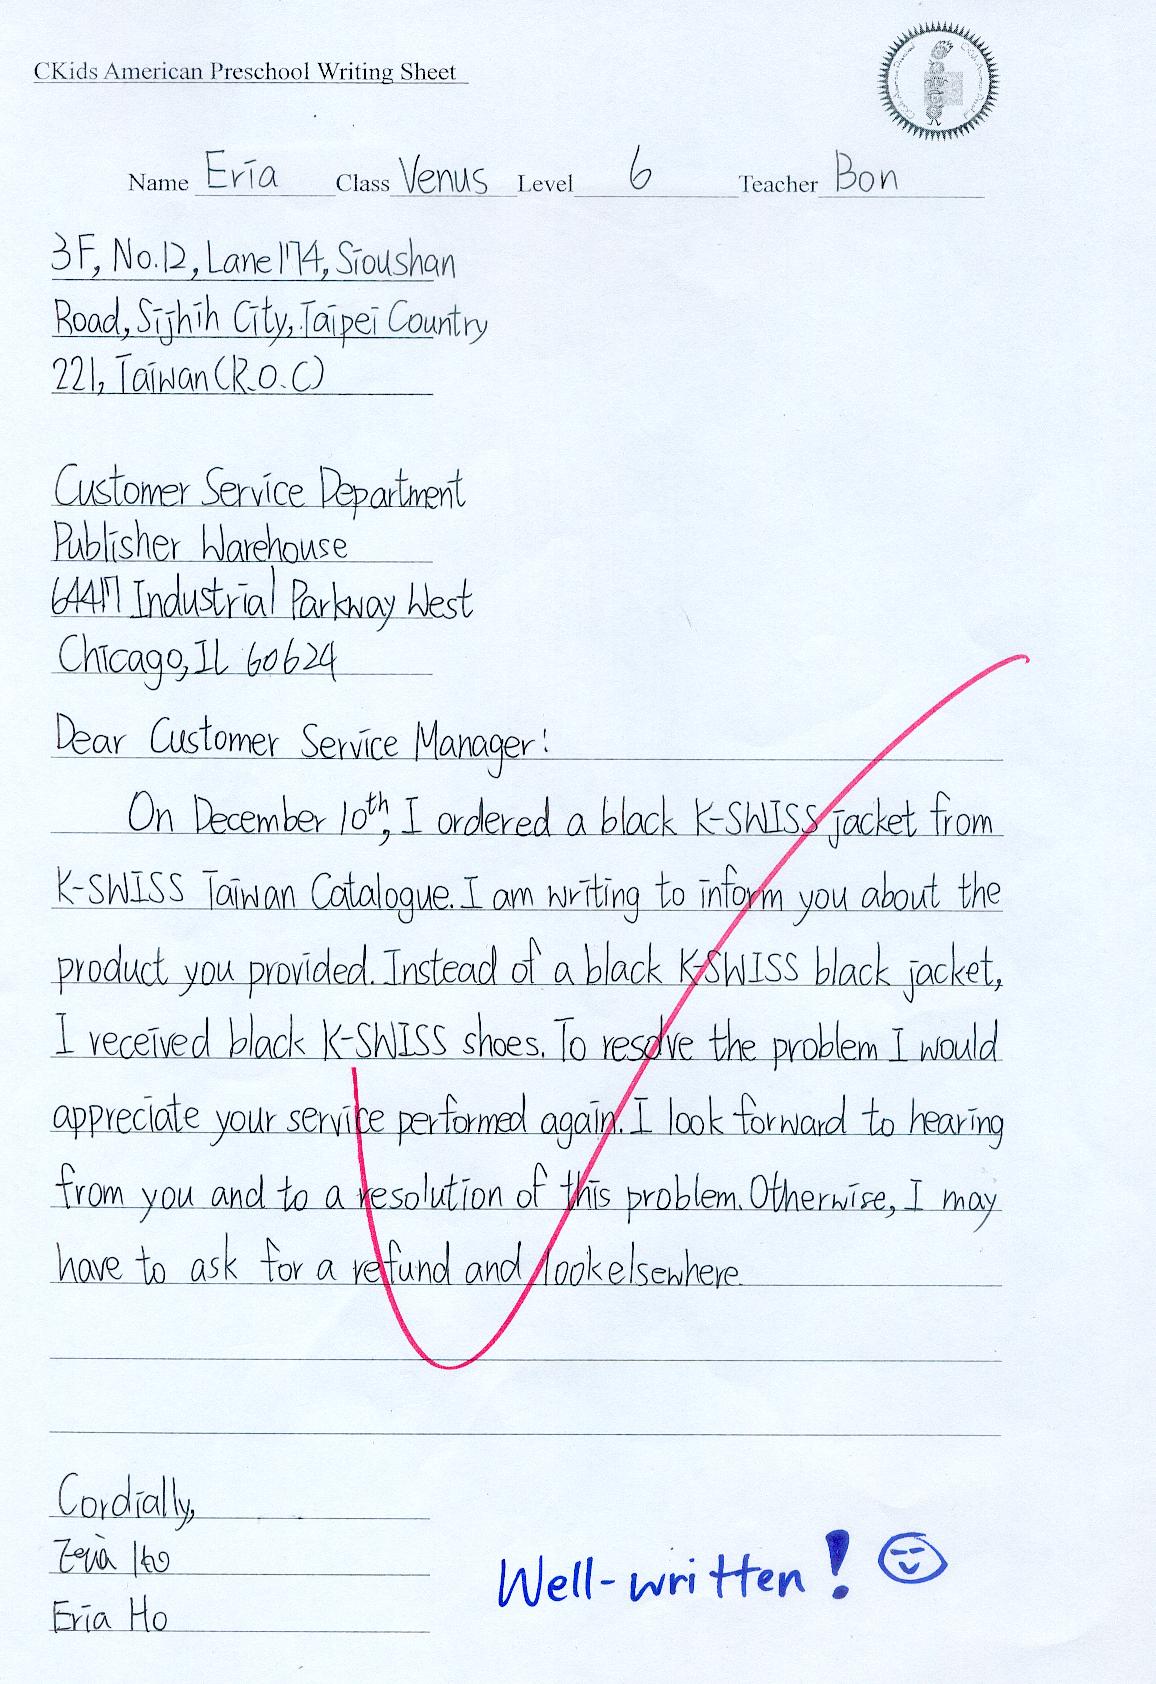 CKids American Preschool Writing Sheet
Name Eria Class Venus Level 6 Teacher Bon
3F, No.12, Lane 174, Sioushan
Road, Sijhih City, Taipei Country
221, Taiwan (R.O.C)
Customer Service Department
Publisher Warehouse
64417 Industrial Parkway West
Chicago, IL 60624
Dear Customer Service Manager:
On December 10th, I ordered a black K-SWISS jacket from
K-SWISS Taiwan Catalogue. I am writing to inform you about the
product you provided. Instead of a black K-SWISS black jacket,
I received black K-SWISS shoes. To resolve the problem I would
appreciate your service performed again. I look forward to hearing
from you and to a resolution of this problem. Otherwise, I may
have to ask for a refund and look elsewhere.
Cordially,
Eria Ho
Eria Ho
Well-written!